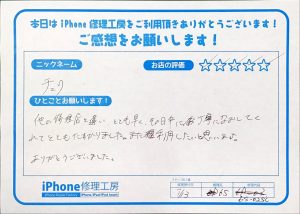 本日は iPhone 修理工房をご利用頂きありがとうございます!
ご感想をお願いします!
ニックネーム
お店の評価
チェク
ひとことお願いします!
他の修理店と違い とても早く その日中に 丁寧になおしてく
れて とてもたすかりました。また 利用したいと思います。
ありがとうございました。
iPhone修理工房